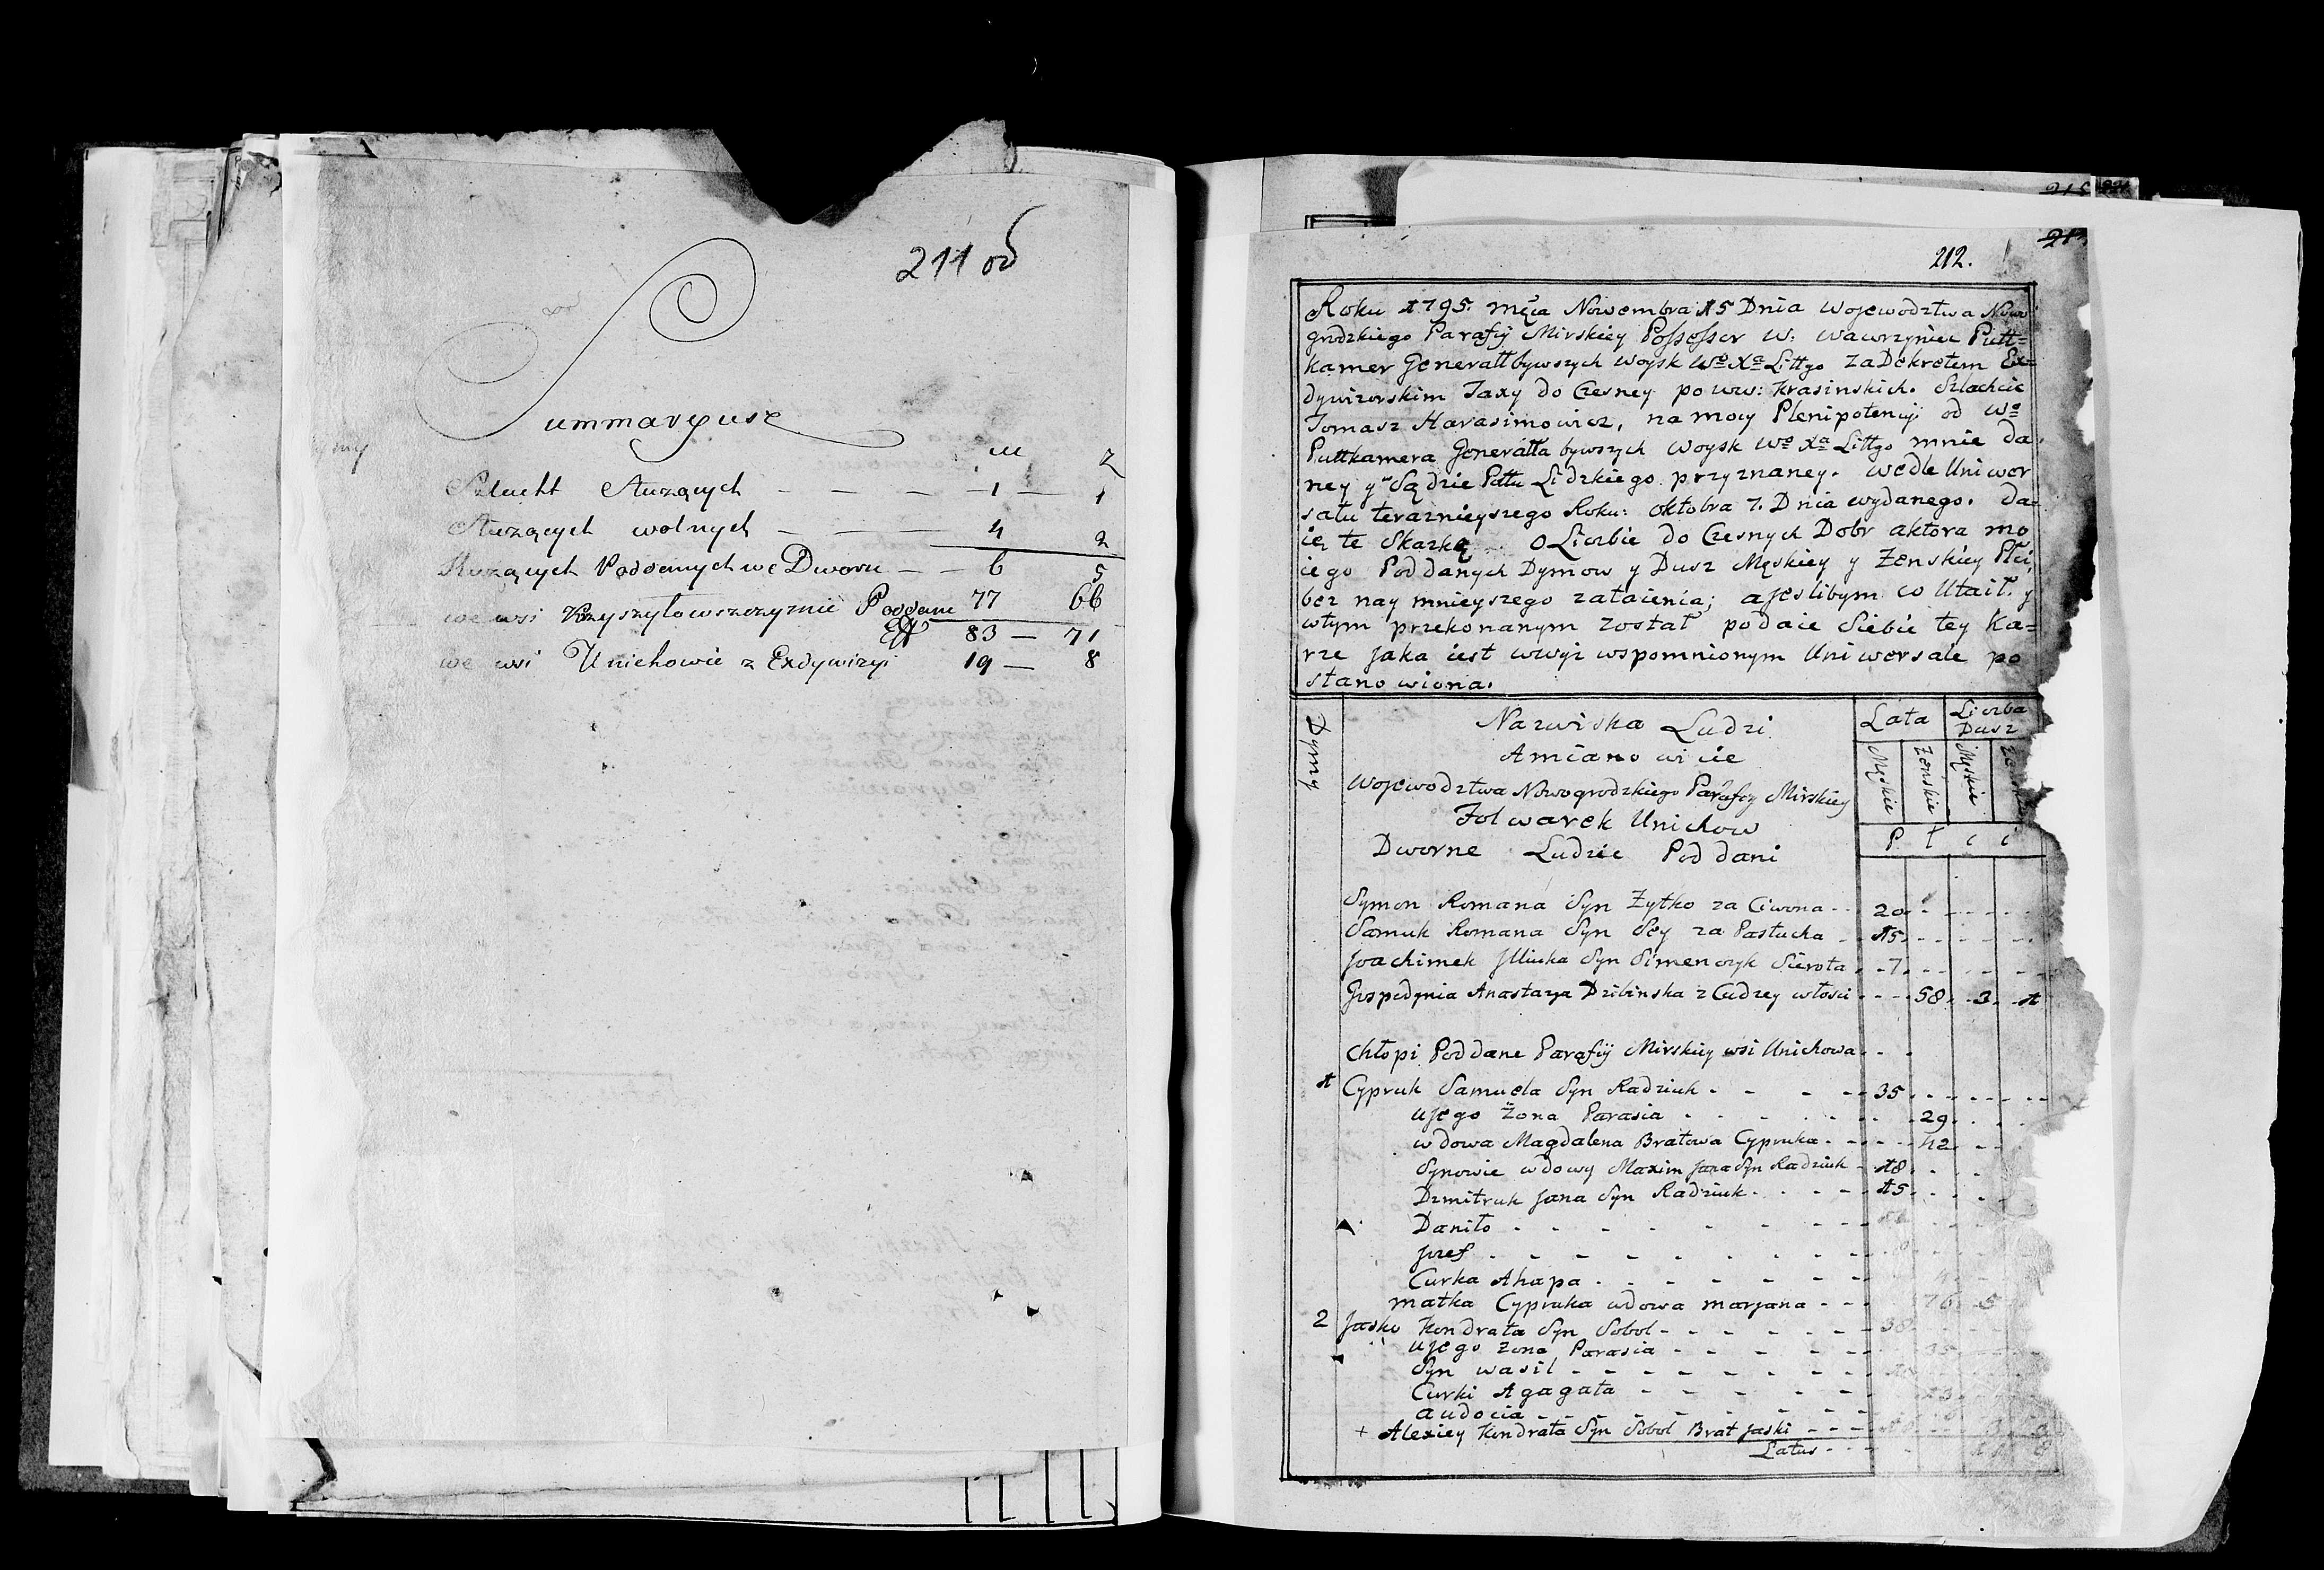 211 об
Summaryusz
M Z
Szlacht Służących — — — 1 — 1
Służących wolnych — — — 4 2
Służących Poddanych we Dworu — — 6 5
we wsi Krzyszyłowszczyznie Poddane 77 66
83 — 71
we wsi Unichowie z Exdywizyi 19 — 8
212.
Roku 1795. mca Nowembra 15 Dnia Wojewodztwa Nowo
grodzkiego Parafij Mirskiey Possessor W: Wawrzyniec Putt=
kamer Generałł bywszych woysk Wo Xa Littgo za Dekretem Ex=
dywizorskim Taxy do Czesney po urw: Krasinskich. Szlachcic
Tomasz Harasimowicz, na mocy Plenipotencyi od Wo
Puttkamera Generałła bywszych Woysk Wo Xa Littgo mnie da
ney y w Sądzie Pttu Lidzkiego przyznaney. wedle Uniwer
sału teraznieyszego Roku: oktobra 7. Dnia wydanego. Da=
ię te Skazkę O Liczbie do Czesnych Dobr aktora mo
iego Poddanych Dymow y Dusz Męskiey y Zenskiey Płci,
bez nay mnieyszego zataienia; a jeslibym co Utaił. y
wtym przekonanym został podaie Siebie tey Ka=
rze jaka iest wwyż wspomnionym Uniwersale po
stanowiona.
Dymy
Nazwiska Ludzi
Amianowicie
Wojewodztwa Nowogrodzkiego Parafij Mirskiey
Folwarek Unichow
Dworne Ludzie Poddani
Lata Liczba Dusz
Męskie Żenskie Męskie
P ł c i
Symon Romana Syn Żytko za Ciwona - - 20
Samuk Romana Syn Sey za Pastucha - 15
Joachimek Jlliuka Syn Pimenczyk Sierota - 7
Gospodynia Anastazya Dzibinska z Cudzey włosci - - - 58 - 3 - 1
Chłopi Poddane Parafij Mirskiey wsi Unichowa
1 Cypruk Samuela Syn Radziuk - - - - 35
Ujego Żona Parasia - - - - 29
wdowa Magdalena Bratowa Cypruka - - - 42
Synowie wdowy Maxim Jana Syn Radziuk - 18
Dzmitruk Jana Syn Radziuk - - - - 15
Daniło - - - - - -
Jozef - - - - - - -
Curka Ahapa - - - - - -
matka Cypruka wdowa maryana - - - 76 - 5
2 Jasko Kondrata Syn Sobol - - - - - - 38
Ujego zona Parasia - - - - -
Syn wasil - - - - - - -
Curki Agagata - - - - - -
audocia - - - - - - -
+ Alexiey Kondrata Syn Sobol Brat Jaski - - -
Latus - -